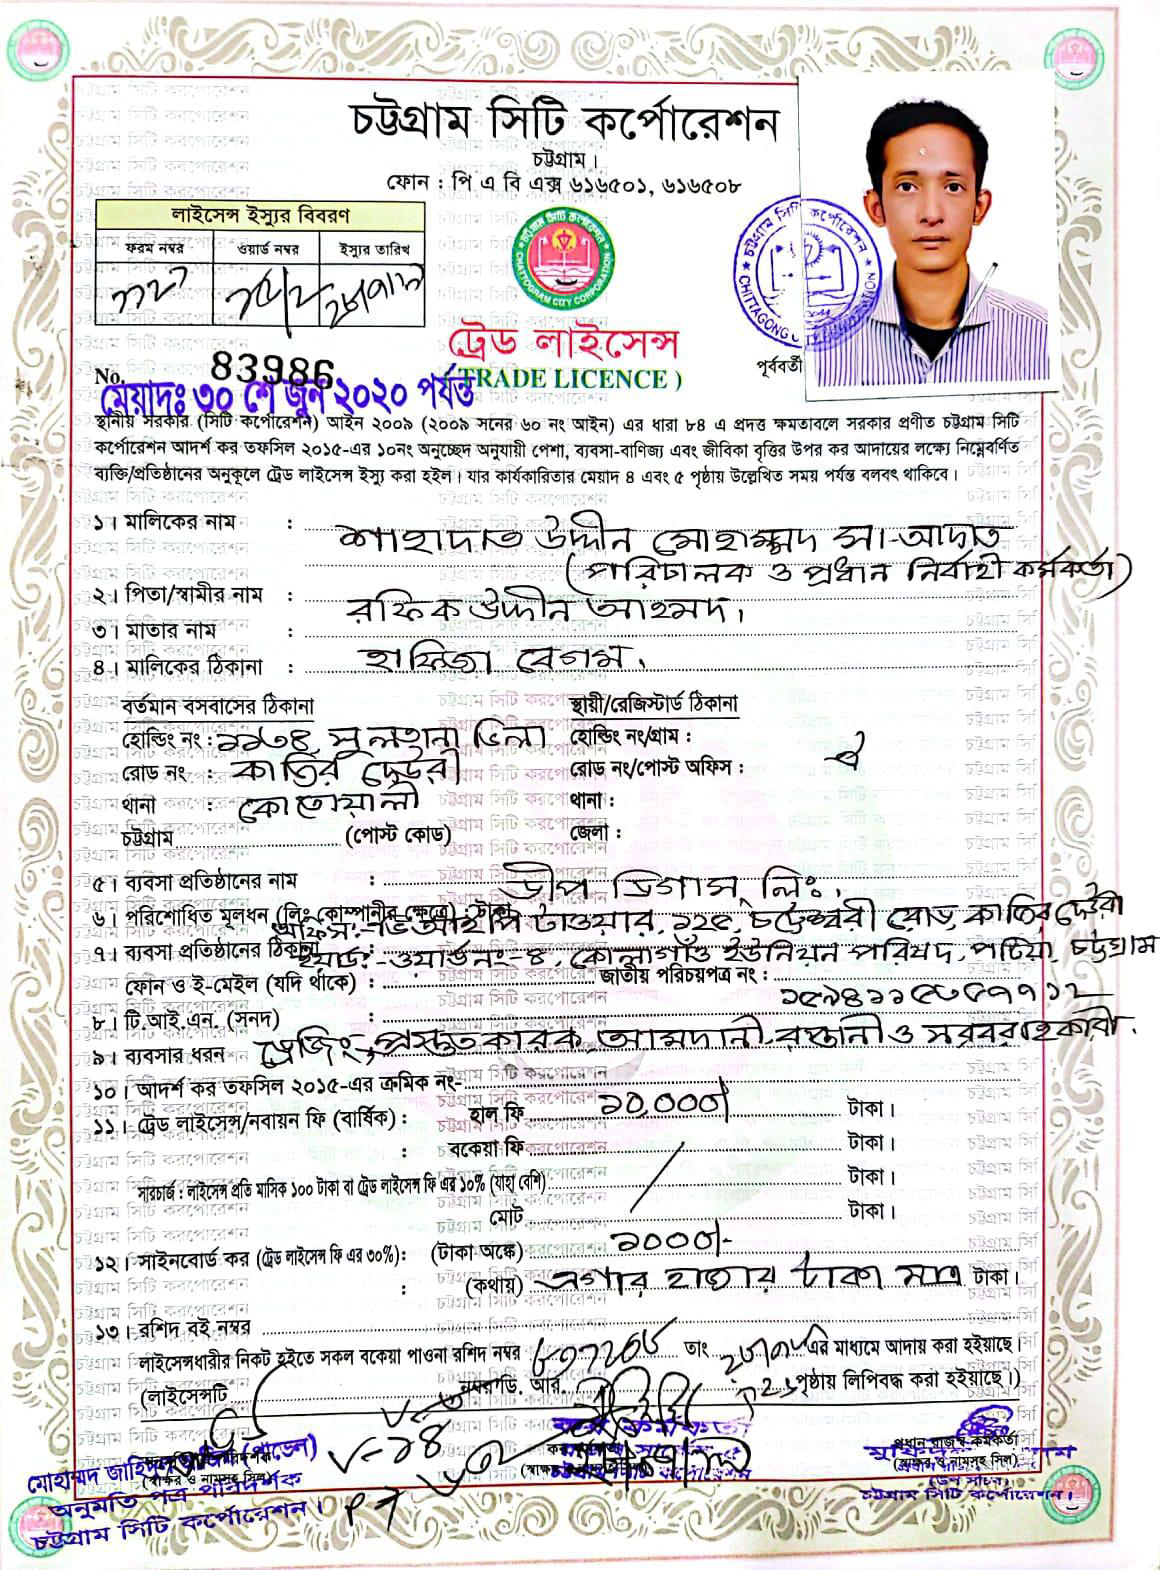 চট্টগ্রাম সিটি কর্পোরেশন
চট্টগ্রাম।
ফোন : পি এ বি এক্স ৬১৬৫০১, ৬১৬৫০৮
লাইসেন্স ইস্যুর বিবরণ
ফরম নম্বর ওয়ার্ড নম্বর ইস্যুর তারিখ
চট্টগ্রাম সিটি কর্পোরেশন
CHATTOGRAM CITY CORPORATION
চট্টগ্রাম সিটি কর্পোরেশন
CHITTAGONG
ট্রেড লাইসেন্স
(TRADE LICENCE )
পূর্ববর্তী
No. 83986
মেয়াদঃ ৩০ শে জুন ২০২০ পর্যন্ত
স্থানীয় সরকার (সিটি কর্পোরেশন) আইন ২০০৯ (২০০৯ সনের ৬০ নং আইন) এর ধারা ৮৪ এ প্রদত্ত ক্ষমতাবলে সরকার প্রণীত চট্টগ্রাম সিটি
কর্পোরেশন আদর্শ কর তফসিল ২০১৫-এর ১০নং অনুচ্ছেদ অনুযায়ী পেশা, ব্যবসা-বাণিজ্য এবং জীবিকা বৃত্তির উপর কর আদায়ের লক্ষ্যে নিম্নেবর্ণিত
ব্যক্তি/প্রতিষ্ঠানের অনুকূলে ট্রেড লাইসেন্স ইস্যু করা হইল। যার কার্যকারিতার মেয়াদ ৪ এবং ৫ পৃষ্ঠায় উল্লেখিত সময় পর্যন্ত বলবৎ থাকিবে।
১। মালিকের নাম : শাহাদাত উদ্দীন মোহাম্মদ সা-আদাত
(পরিচালক ও প্রধান নির্বাহী কর্মকর্তা)
২। পিতা/স্বামীর নাম : রফিক উদ্দীন আহমদ।
৩। মাতার নাম :
৪। মালিকের ঠিকানা : হাফিজা বেগম।
বর্তমান বসবাসের ঠিকানা স্থায়ী/রেজিস্টার্ড ঠিকানা
হোল্ডিং নং : ১১৩৪ সুলতানা ভিলা হোল্ডিং নং/গ্রাম :
রোড নং : কাজির দেউরী রোড নং/পোস্ট অফিস : ঐ
থানা : কোতোয়ালী থানা :
চট্টগ্রাম (পোস্ট কোড) জেলা :
৫। ব্যবসা প্রতিষ্ঠানের নাম : লিঃ।
৬। পরিশোধিত মূলধন (লিঃ কোম্পানীর ক্ষেত্রে) : টাকা
অফিস:-ভিআইপি টাওয়ার, ১২৫, চট্টেশ্বরী রোড, কাজির দেউরী
৭। ব্যবসা প্রতিষ্ঠানের ঠিকানা : ইয়ার্ড:- ওয়ার্ড নং-৪, কোলাগাঁও ইউনিয়ন পরিষদ, পটিয়া, চট্টগ্রাম
ফোন ও ই-মেইল (যদি থাকে) : জাতীয় পরিচয়পত্র নং :
৮। টি.আই.এন. (সনদ) :
৯। ব্যবসার ধরন ড্রেজিং, প্রস্তুতকারক, আমদানী-রপ্তানী ও সরবরাহকারী।
১০। আদর্শ কর তফসিল ২০১৫-এর ক্রমিক নং-
১১। ট্রেড লাইসেন্স/নবায়ন ফি (বার্ষিক) : হাল ফি ১০,০০০/ টাকা।
: বকেয়া ফি টাকা।
সারচার্জ : লাইসেন্স প্রতি মাসিক ১০০ টাকা বা ট্রেড লাইসেন্স ফি এর ১০% (যাহা বেশি) টাকা।
মোট টাকা।
১২। সাইনবোর্ড কর (ট্রেড লাইসেন্স ফি এর ৩০%) : (টাকা অঙ্কে) ১০০০/-
: (কথায়) এগার হাজার টাকা মাত্র টাকা।
১৩। রশিদ বই নম্বর
লাইসেন্সধারীর নিকট হইতে সকল বকেয়া পাওনা রশিদ নম্বর তাং এর মাধ্যমে আদায় করা হইয়াছে।
(লাইসেন্সটি নম্বর ডি. আর. পৃষ্ঠায় লিপিবদ্ধ করা হইয়াছে।)
প্রধান রাজস্ব কর্মকর্তা
(স্বাক্ষর ও নামসহ সিল) (স্বাক্ষর ও নামসহ সিল)
মোহাম্মদ
অনুমতি পত্র পরিদর্শক
চট্টগ্রাম সিটি কর্পোরেশন।
চট্টগ্রাম সিটি কর্পোরেশন।